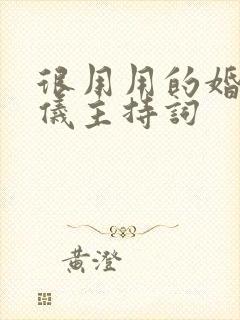 很用用的婚
儀主持詞
黄澄